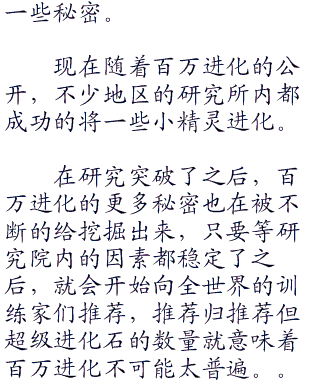 一些秘密。
现在随着百万进化的公
开，不少地区的研究所内都
成功的将一些小精灵进化。
在研究突破了之后，百
万进化的更多秘密也在被不
断的给挖掘出来，只要等研
究院内的因素都稳定了之
后，就会开始向全世界的训
练家们推荐，推荐归推荐但
超级进化石的数量就意味着
百万进化不可能太普遍。。